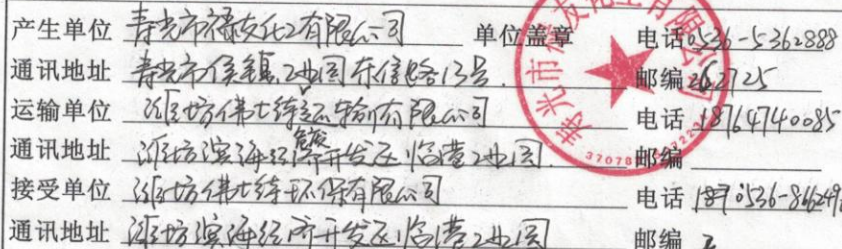 产生单位 寿光市禄友化工有限公司 单位盖章 电话 0536-5362888
通讯地址 寿光市侯镇工业园东信路13号. 邮编 262725
运输单位 潍坊佛士特运输有限公司 电话 18764740085
通讯地址 潍坊滨海经济开发区临港工业园. 邮编
接受单位 潍坊佛士特环保有限公司 电话 0536-866249
通讯地址 潍坊滨海经济开发区临港工业园 邮编
寿光市 友化工有限公司